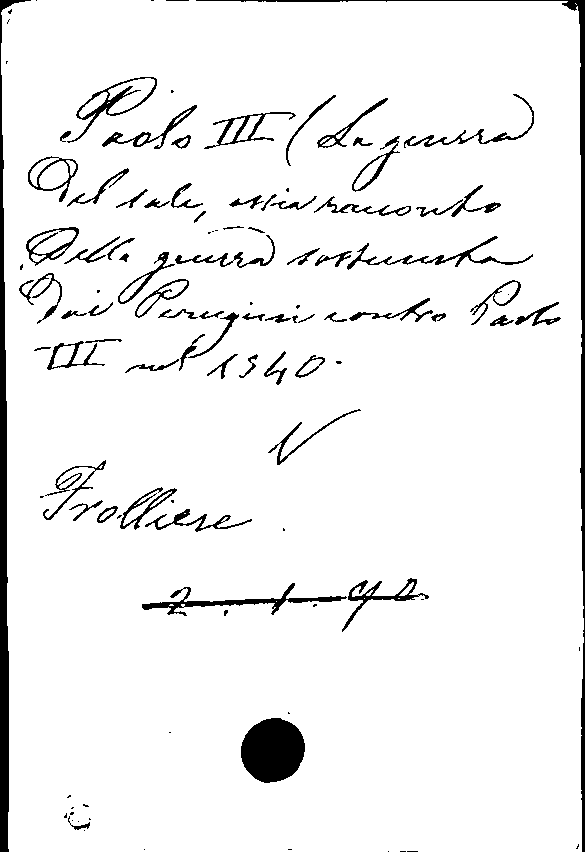 Paolo III (La guerra)
del sale, ossia racconto
della guerra sostenuta
dai Perugini contro Paolo
III nel 1540.
V
Frolliere
2.1.90